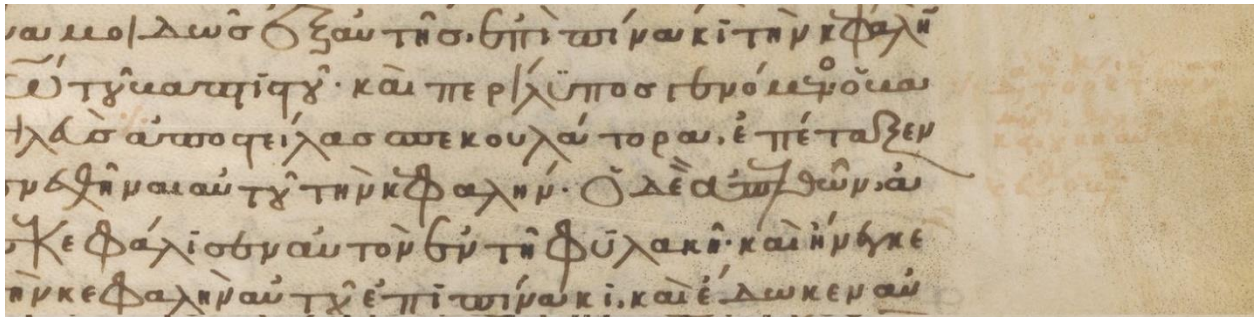 να μοι δῶς ἐξαυτῆς· ἐπὶ πίνακι τὴν κεφαλὴν
ιω̅ τοῦ βαπτιστοῦ· καὶ περίλϋπος γενόμενος ὁ βα
ιλεὺς ἀποστείλας σπεκουλάτορα, ἐπέταξεν
ενεχθῆναι αὐτοῦ τὴν κεφαλήν. ὁ δὲ ἀπελθὼν, ἀ
πεκεφάλισεν αὐτὸν ἐν τῆ φϋλακῆ· καὶ ἤνεγκε
τὴν κεφαλὴν αὐτοῦ ἐπὶ πίνακι, καὶ ἔδωκεν αὐ